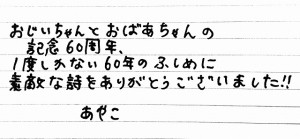 おじいちゃんとおばあちゃんの
記念60周年、
1度しかない60年のふしめに
素敵な詩をありがとうございました!!
あやこ